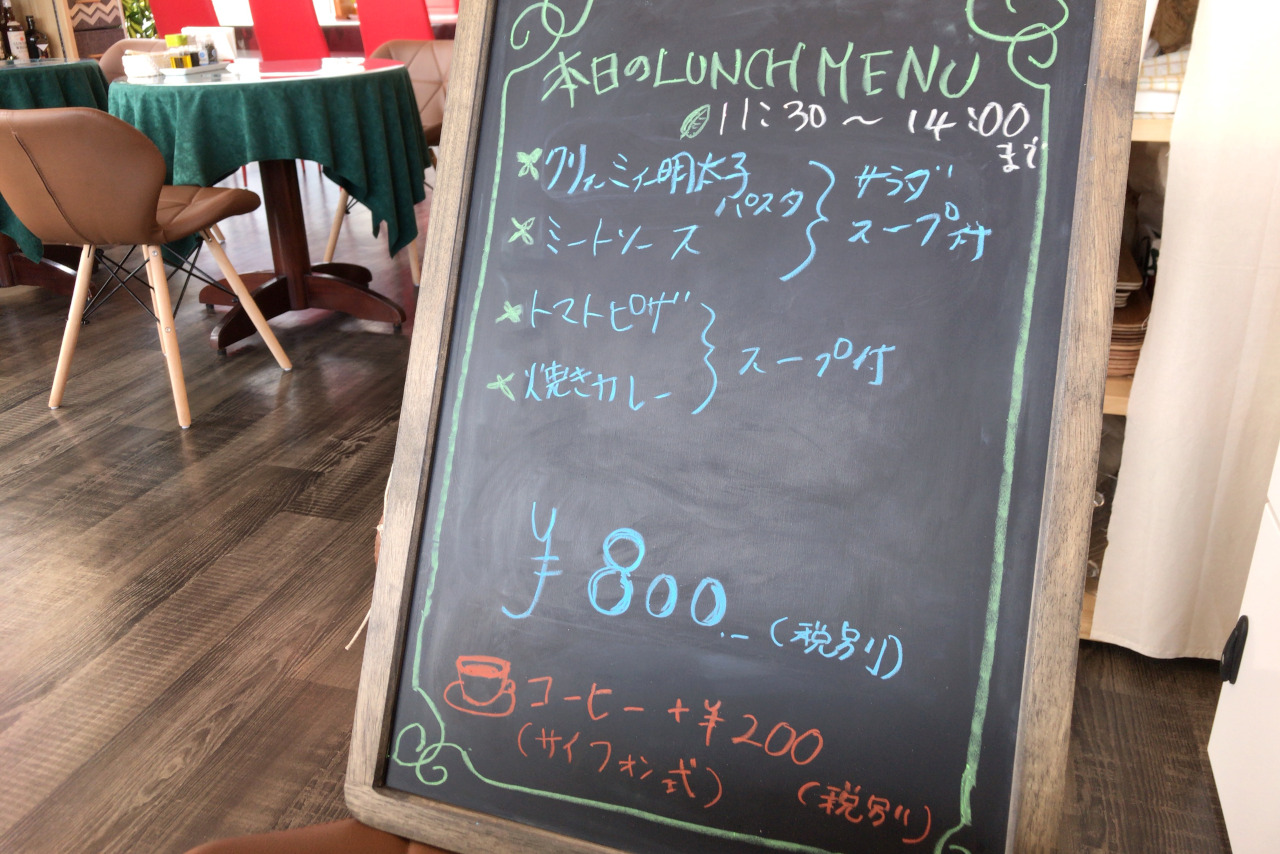 本日のLUNCH MENU
11:30～14:00
まで
クリィーミィー明太子
パスタ
サラダ
スープ付
ミートソース
トマトピザ
焼きカレー
スープ付
¥800.-(税別)
コーヒー+¥200
(サイフォン式)
(税別)